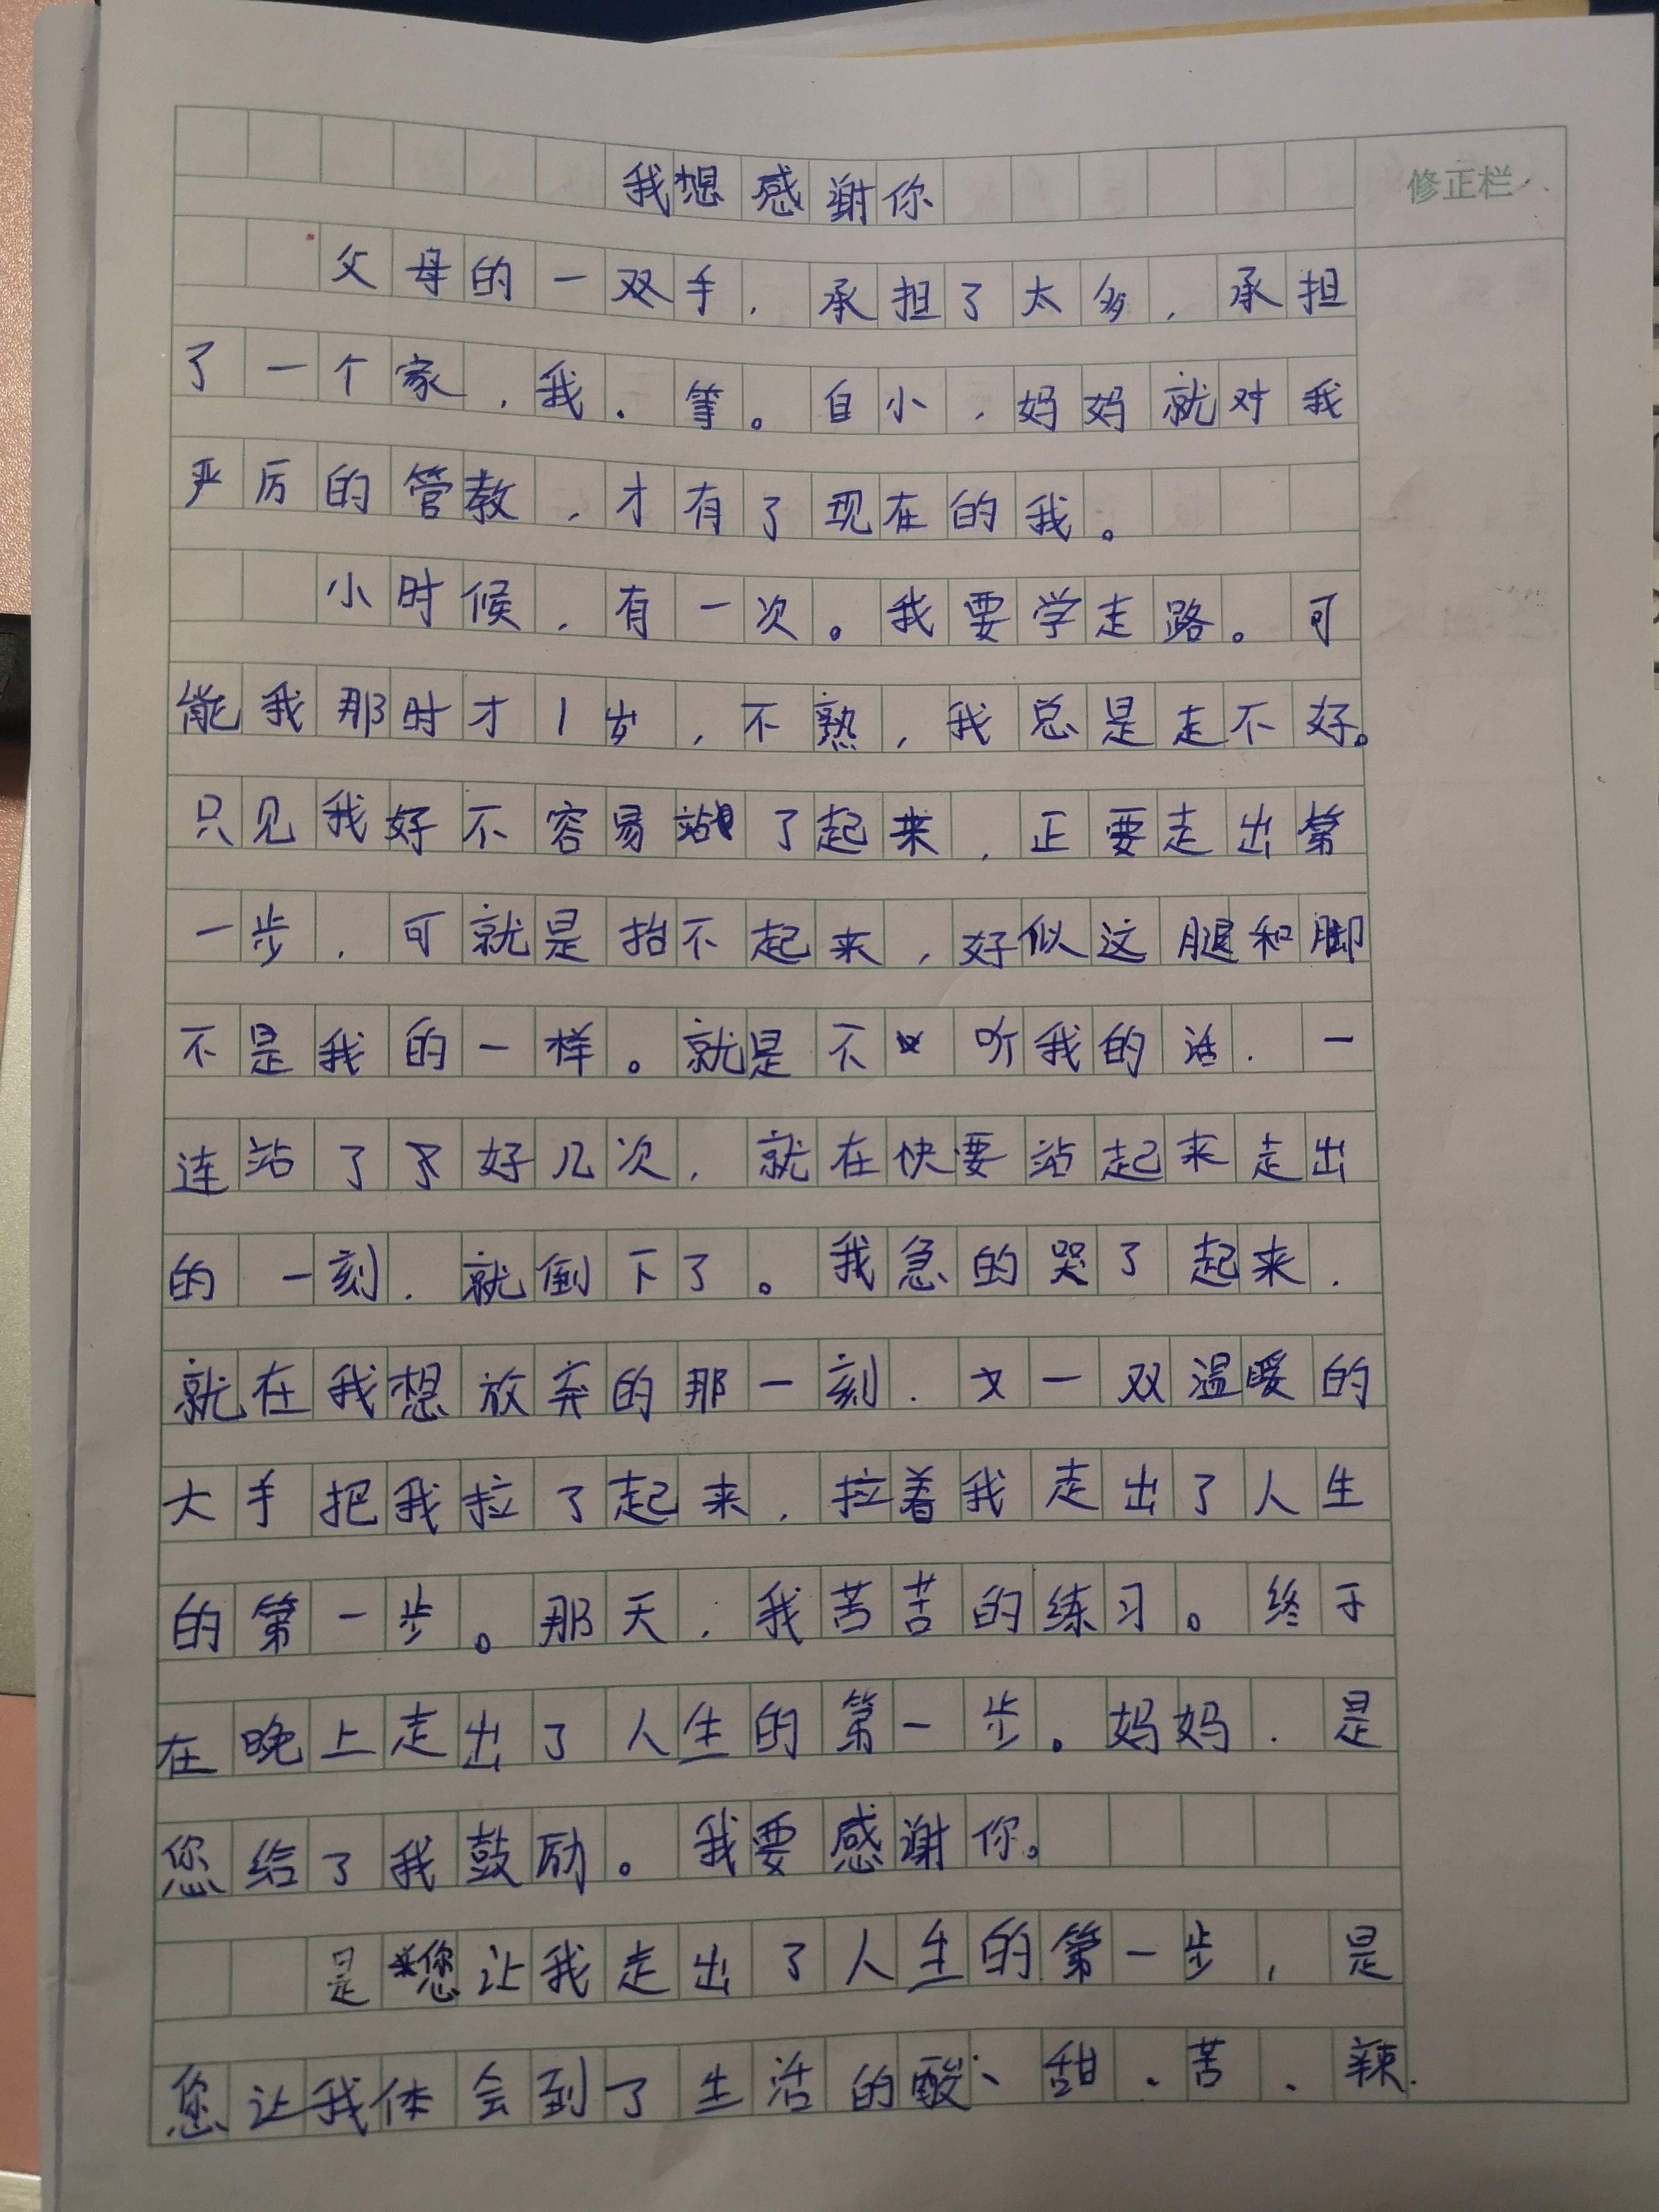 我想感谢你
修正栏
父母的一双手，承担了太多，承担
了一个家，我，等。自小，妈妈就对我
严厉的管教，才有了现在的我。
小时候，有一次。我要学走路。可
能我那时才1岁，不熟，我总是走不好。
只见我好不容易站了起来，正要走出第
一步，可就是抬不起来，好似这腿和脚
不是我的一样。就是不听我的话，一
连站了好几次，就在快要站起来走出
的一刻，就倒下了。我急的哭了起来，
就在我想放弃的那一刻，一双温暖的
大手把我拉了起来，拉着我走出了人生
的第一步。那天，我苦苦的练习。终于
在晚上走出了人生的第一步。妈妈，是
您给了我鼓励。我要感谢你。
是您让我走出了人生的第一步，是
您让我体会到了生活的酸、甜、苦、辣.